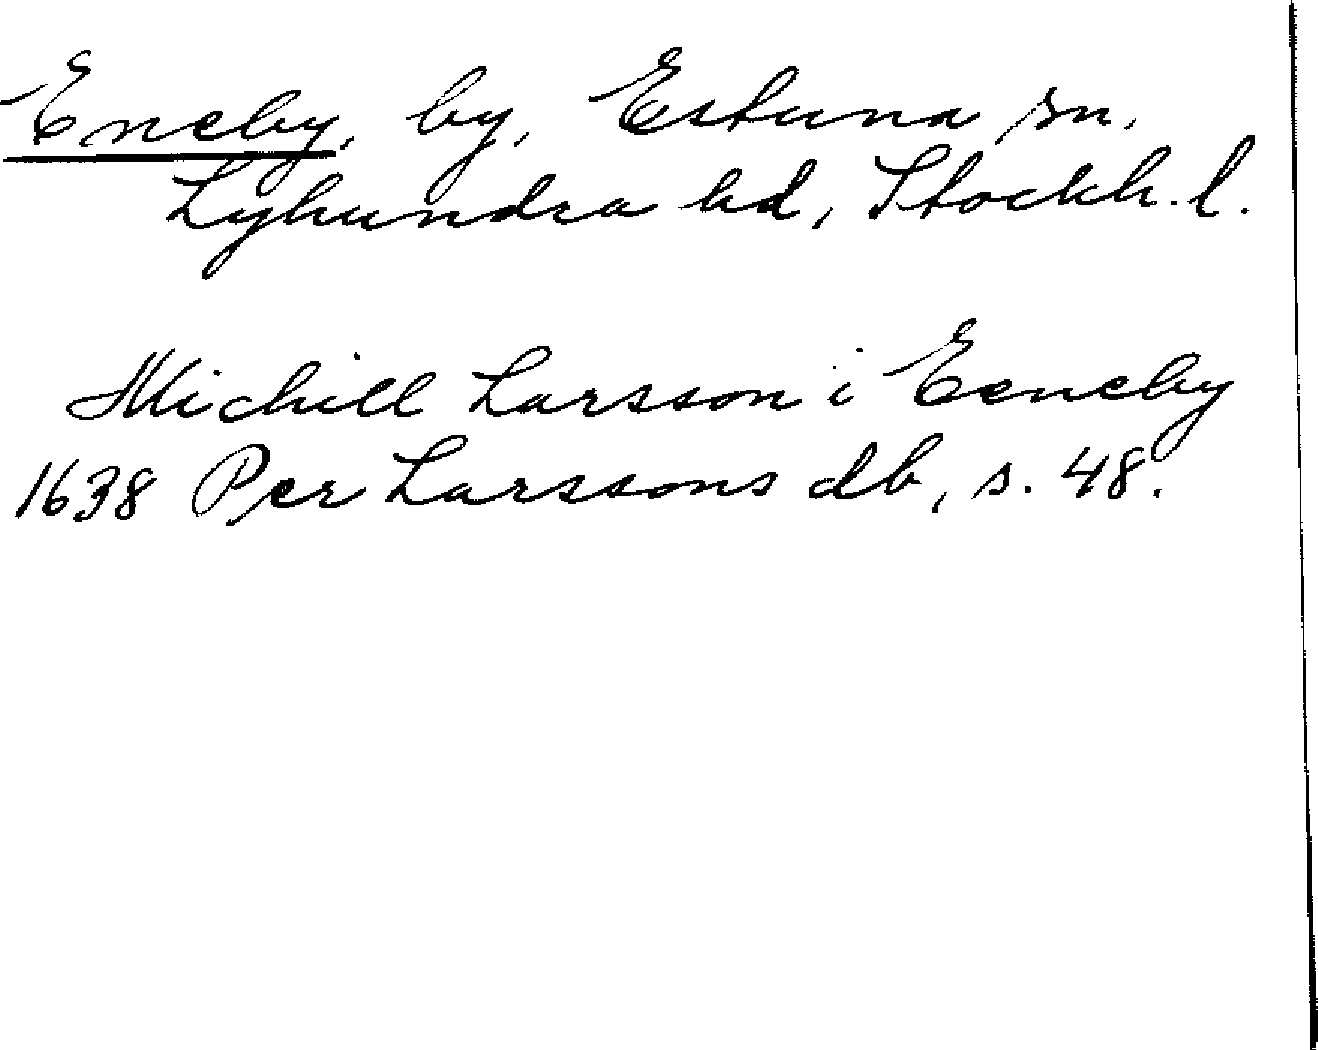 Eneby, by, Estuna sn.
Lyhundra hd, Stockh. l.
Michill Larsson i Eeneby
1638 Per Larssons db, s. 48.